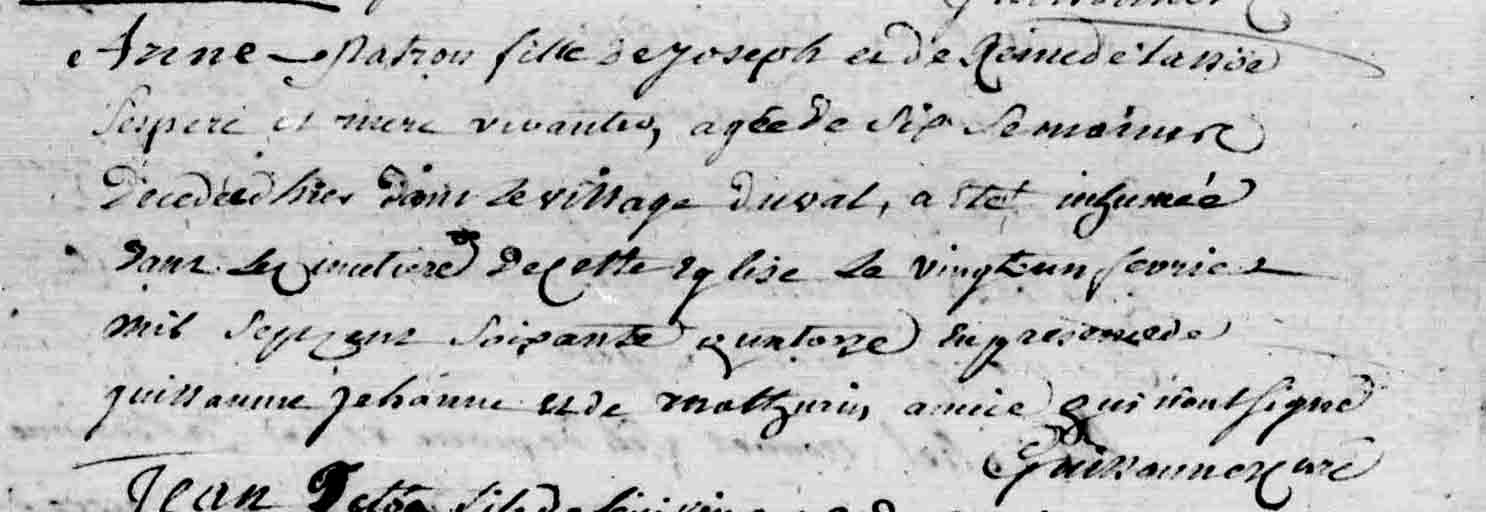 Anne Patron fille de joseph et de Reine delanoë
Ses pere et mere vivantes, agée de six semaines
Decedée d'hier dans le village duval, a êtet inhumée
dans le cimetiere de cette Eglise le vingt un fevrier
mil Sept cens soixante quatorze en presence de
guillaume jehanne et de mathurin amice qui n'ont signé
Guillaume curé
Jean